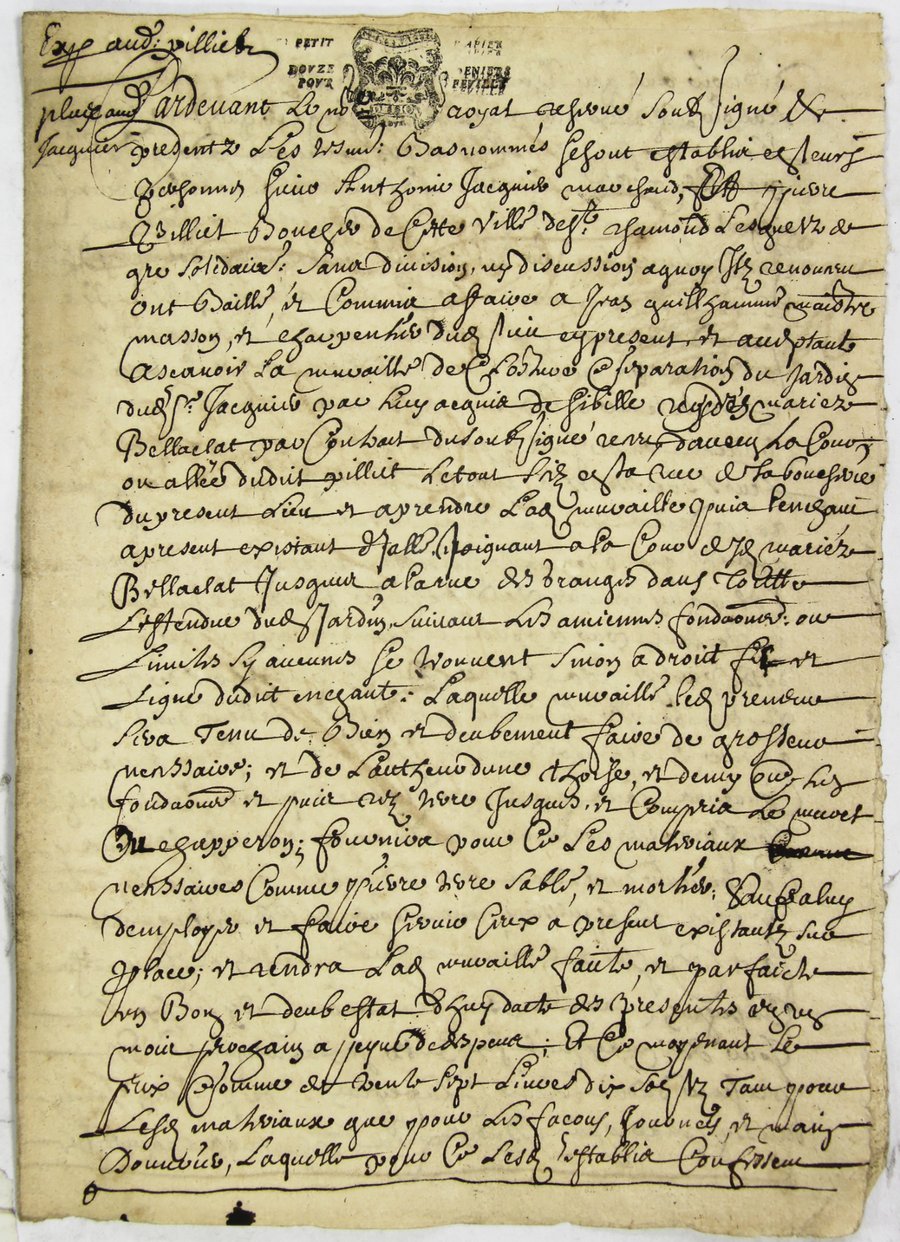 Exp aud. villiet
PETIT PAPIER
DOUZE DENIERS
POUR FEUILLE
plus aud
Jacquier
Pardevant Le no royal reservé soubsigné &
presentz Les tesm: Bas nommés se sont establis es leurs
personnes sieur Anthoine Jacquier marchand, pierre
Villiet Boucher de Cette Ville de st chamond Lesquelz de
gre solidaire: sans division, ny discussion a quoy Ilz renoncent
ont Baillé, et Commis affaire a Jean guilhaume maistre
masson, et charpentier dud lieu cy present, et acceptant
ascavoir La muraille de Closture & separation du Jardin
dud sr Jacquier par luy acquis de sibille mariez
Bellaclat par Contrat du soubsigné La Cour
ou allée dudit villiet Le tout sis en la rue de la boucherie
du present Lieu et a prendre Lad muraille puis
a present existant Joignant a la Cour desd mariez
Bellaclat Jusques a la rue des granges dans Toutte
L'estendue dud Jardin, suivant Les anciennes fondaons: ou
Limites sy aucunes se trouvent sinon a droit fil et
Ligne dudit: Laquelle muraille led preneur
sera Tenu de Bien et deubement faire de grosseur
nessaire; et de L'autheur d'une thoise, et demy Les
fondaons et puis terre Jusques, et Compris Le
chapperon; fournira pour Ce Les materiaux
nessaires Comme pierre terre sable, et mortier: sauf a luy
d'employer et faire servir Ceux a present existantz sur
place; et rendra Lad muraille faite, et parfaicte
en Bon et deub estat d'huy datte des presentes en
mois prochain a peyne de despens; Et Ce moyenant Le
prix & somme de trente sept Livres dix solz Tant pour
Lesd materiaux que pour Les facons, Journées, et main
Douvre, Laquelle pour Ce Lesd establis Confessent